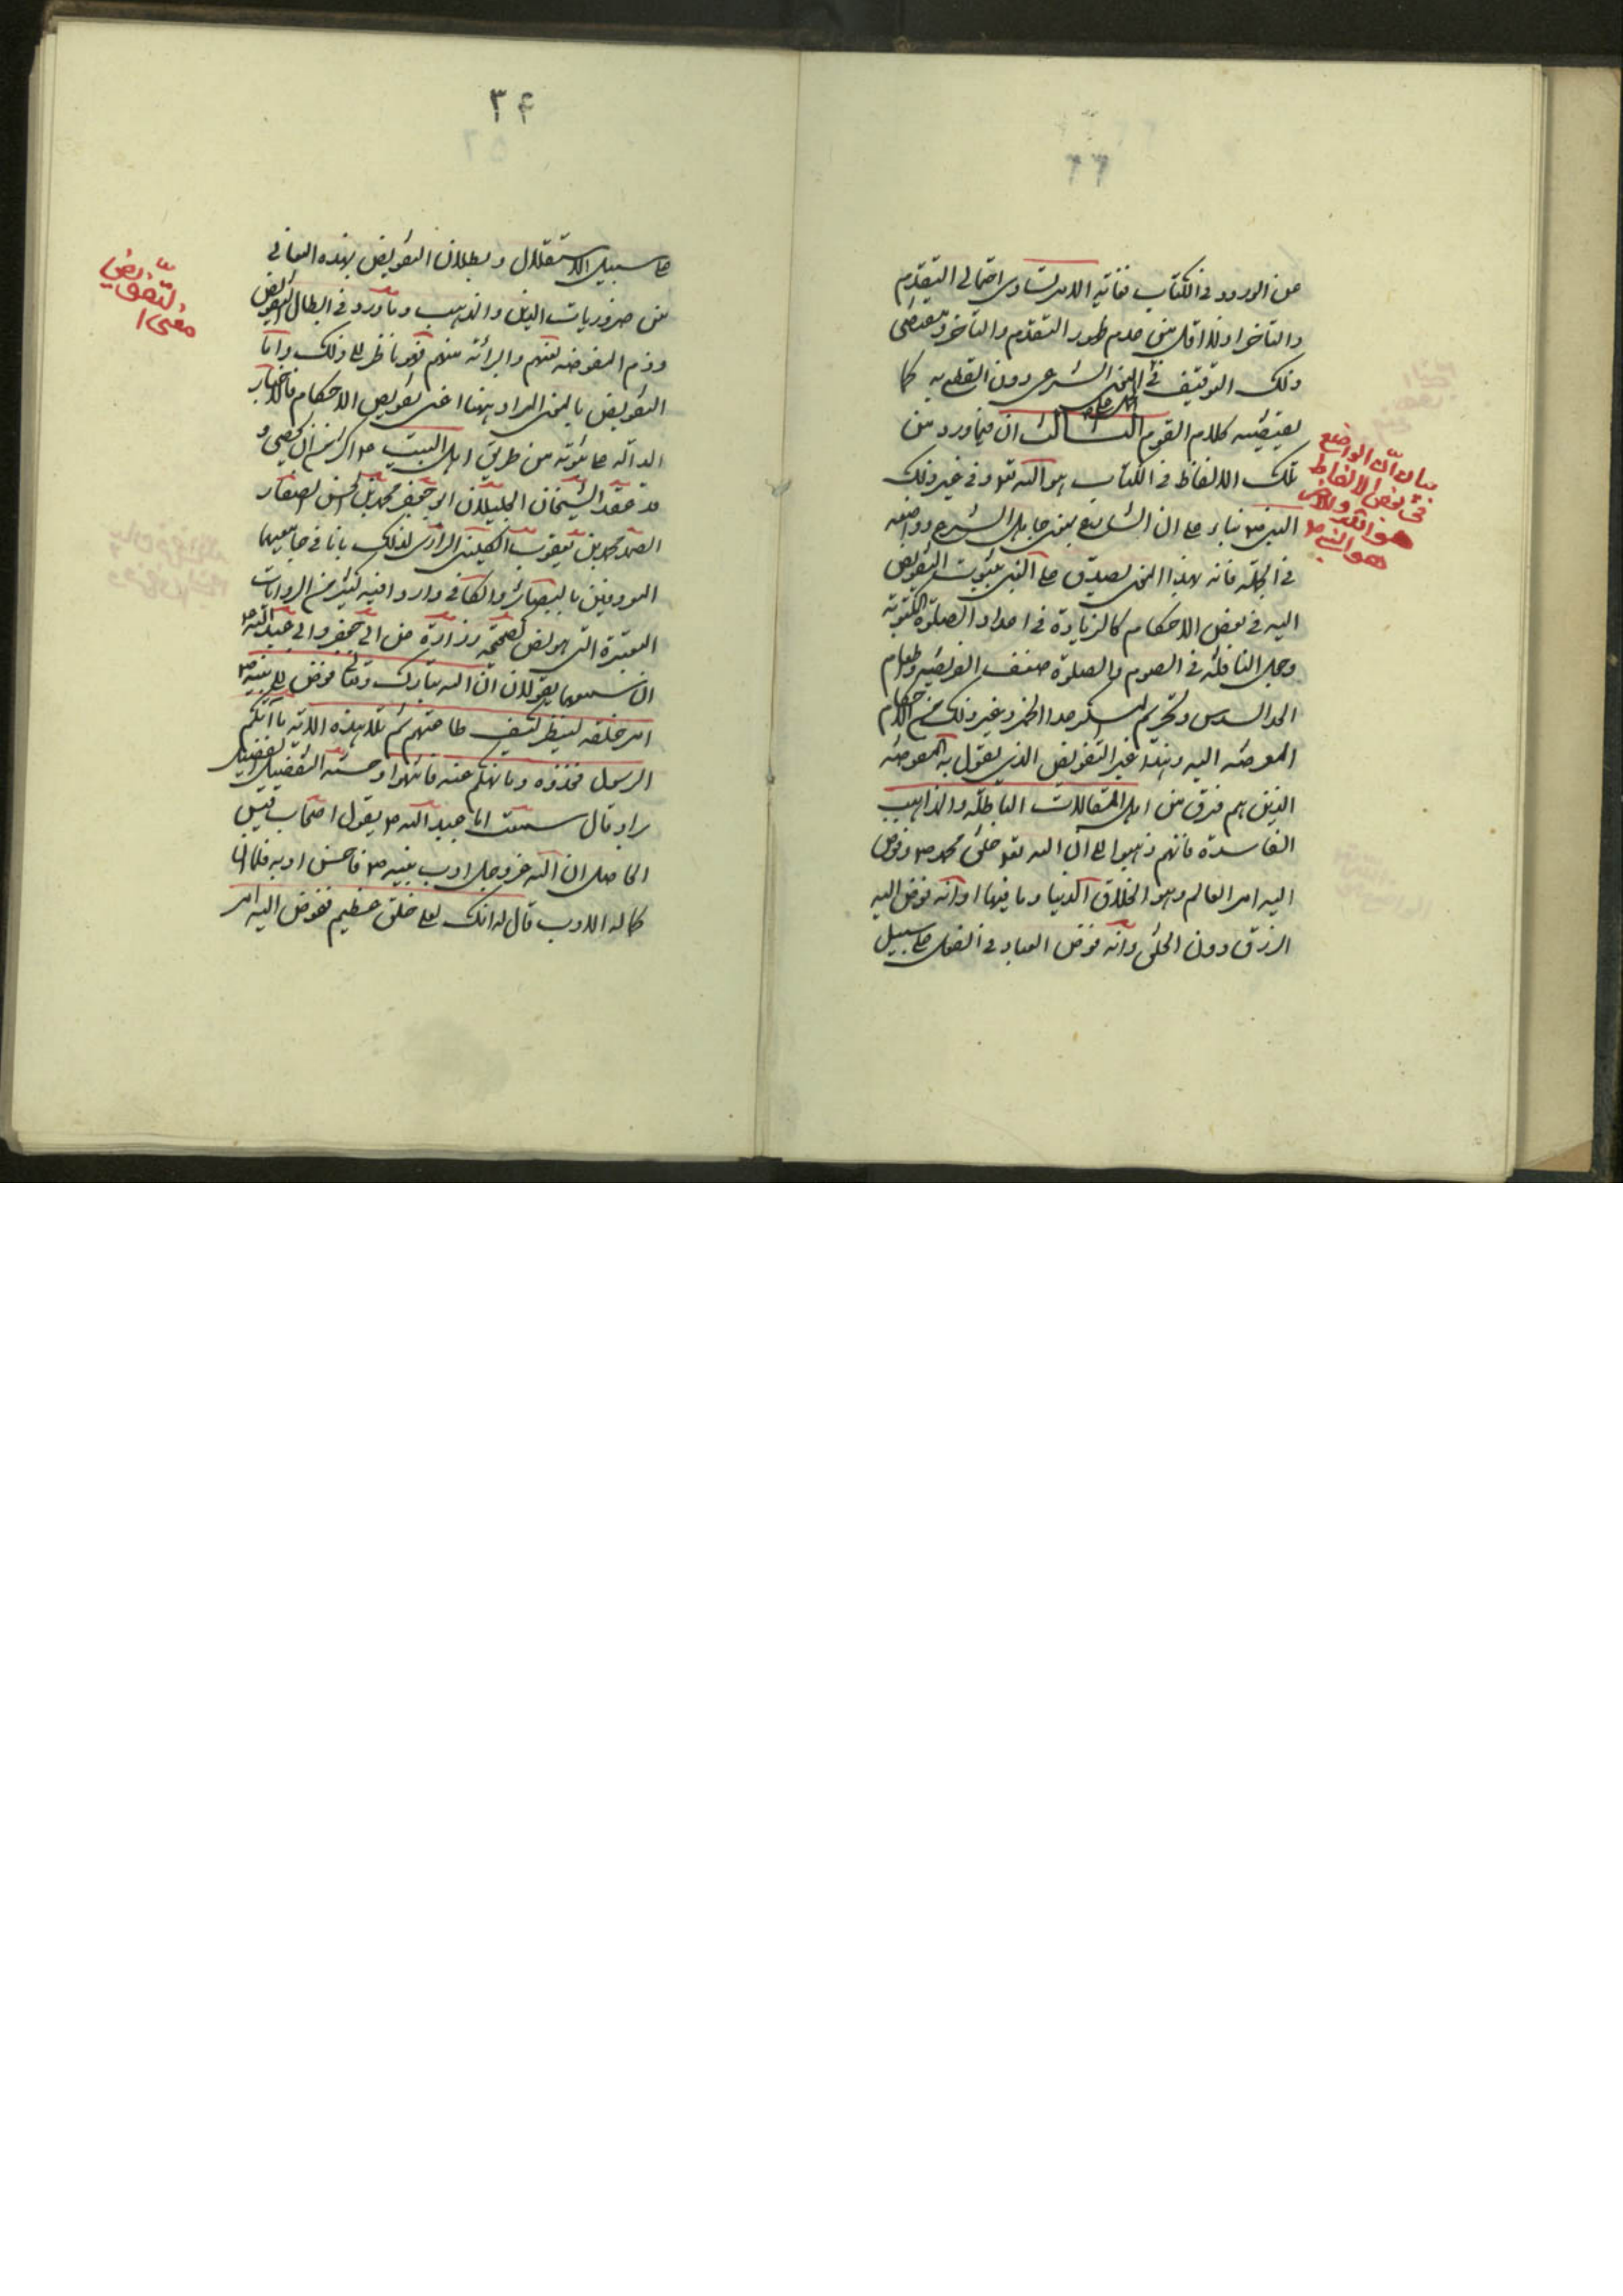 عن الورود في الكتاب فغاية الامر تساوى احتمالى التقدم
والتاخر اولا اقل من عدم ظهور التقدم والتاخر ومقتضى
ذلك التوقيف في المعنى الشرعى دون القطع به كما
يقتضيه كلام القوم الثالث ان فيما ورد من
تلك الالفاظ في الكتاب هو الله تعو وفي غير ذلك
النبى ص بناء على ان الشارع بمعنى جاعل الشرع وواضعه
في الجملة فانه بهذا المعنى يصدق على النبى بثبوت التفويض
اليه في بعض الاحكام كالزيادة في اعداد الصلوة المكتوبة
وجعل النافلة في الصوم والصلوة ضعف الفريضة وطعام
الجد السدس وتحريم المسكر عدا الخمر وغير ذلك من الاحكام
المفوضة اليه وهذا غير التفويض الذى يقول به المفوضة
الذين هم فرق من اهل المقالات الباطلة والمذاهب
الفاسدة فانهم ذهبوا الى ان الله تعو خلق محمد ص وفوض
اليه امر العالم وهو الخلاق الدنيا وما فيها او انه فوض اليه
الرزق دون الخلق وانه فوض العباد في الفعل على سبيل
بيان انّ الواضع
في بعض الالفاظ
هو الله وللاخر
هو النبى ص
٣۴
على سبيل الاستقلال وبطلان التفويض بهذه المعانى
من ضروريات الدين والمذهب وما ورد في ابطال التفويض
وذم المفوضة لعنهم والبرائة منهم فهو ناظر الى ذلك واما
التفويض بالمعنى المراد ههنا اعنى تفويض الاحكام فالاخبار
الدالة على ثبوته من طريق اهل البيت ع اكثر من ان تحصى و
قد عقد الشيخان الجليلان ابو جعفر محمد بن الحسن الصفار
محمد بن يعقوب الكلينى الرازى لذلك بابا في جامعيهما
المعروفين بالبصائر والكافي واردا فيه كثير من الروايات
المعتبرة التى هو بعض كصحيحة زرارة عن ابي جعفر وابي عبد الله ع
انه سمعهما يقولان ان الله تبارك وتعالى فوض الى نبيه ص
امر خلقه لينظر كيف طاعتهم ثم تلا هذه الاية ما آتيكم
الرسول فخذوه وما نهيكم عنه فانتهوا وحسنة الفضيل
قال سمعت ابا عبد الله ع يقول اصحاب قيس
الماصر ان الله عز وجل ادب نبيه ص فاحسن ادبه فلما ان
كما له الادب قال له انك لعلى خلق عظيم ففوض اليه امر
معنى ا
لتّفويض